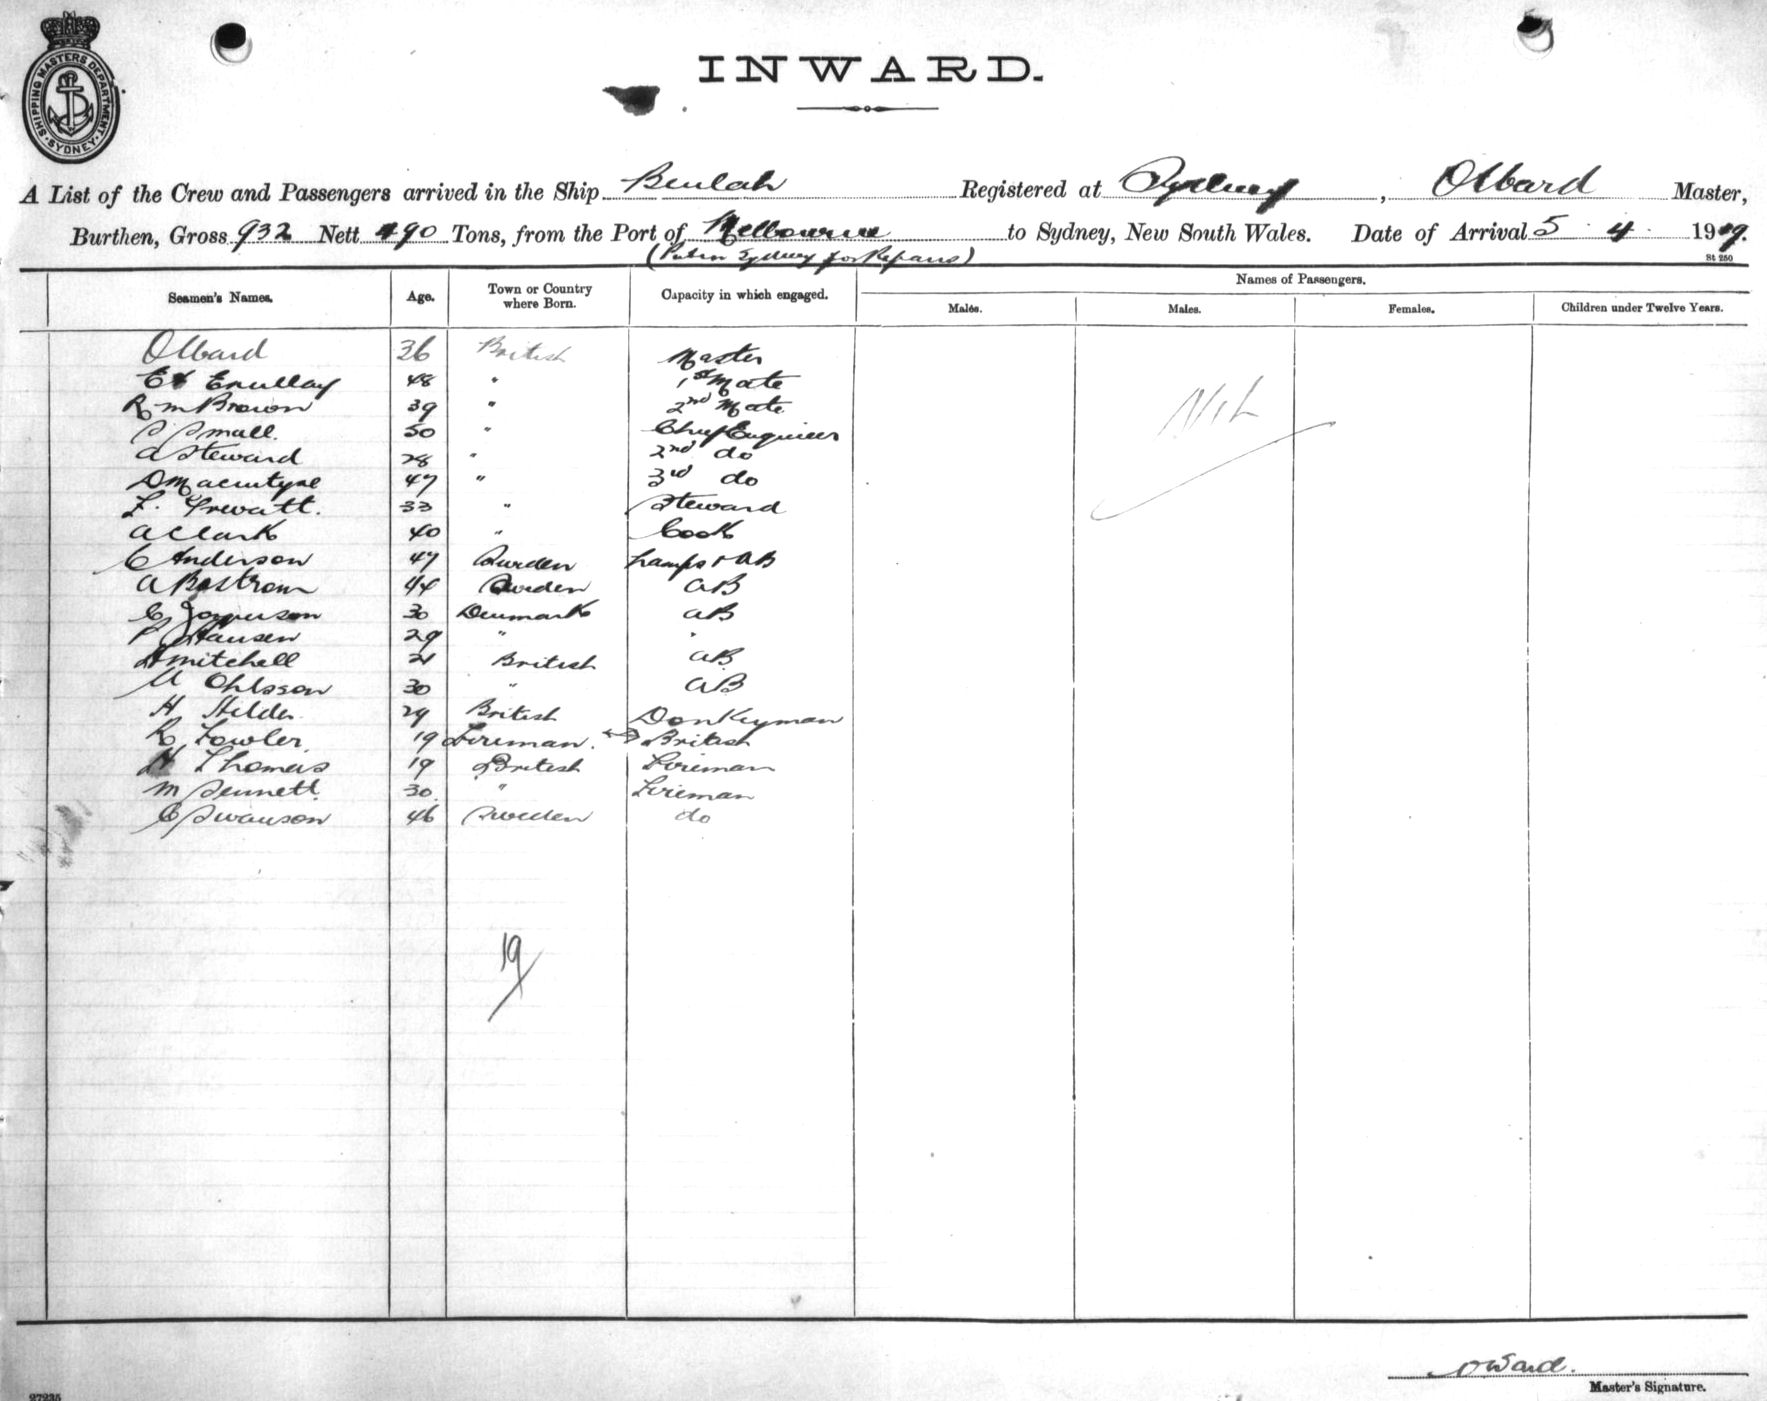 SHIPPING MASTERS DEPARTMENT
SYDNEY
INWARD.
A List of the Crew and Passengers arrived in the Ship Beulah Registered at Sydney, Olbard Master,
Burthen, Gross 932 Nett 490 Tons, from the Port of Melbourne to Sydney, New South Wales. Date of Arrival 5 4 1919.
(Put in Sydney for Repairs)
St 250
Seamen's Names. Age. Town or Country where Born. Capacity in which engaged. Names of Passengers.
Males. Males. Females. Children under Twelve Years.
Olbard 36 British Master
48 " 1st Mate
R M Brown 39 " 2nd Mate
S Small. 50 " Chief Engineer
A Steward 28 " 2nd do
D Macintyre 47 " 3rd do
F. Trevatt. 33 " Steward
A Clark 40 " Cook
C Anderson 47 Sweden Lamps & AB
A Bostrom 44 Sweden AB
C 30 Denmark AB
P Hansen 29 " "
Mitchell 21 British AB
Ohlsson 30 " AB
H Hilder 29 British Donkeyman
R Fowler 19 Fireman. British
H Thomas 19 British Fireman
M Sennett 30 " Fireman
C Swanson 46 Sweden do
Nil
19
Master's Signature.
27235